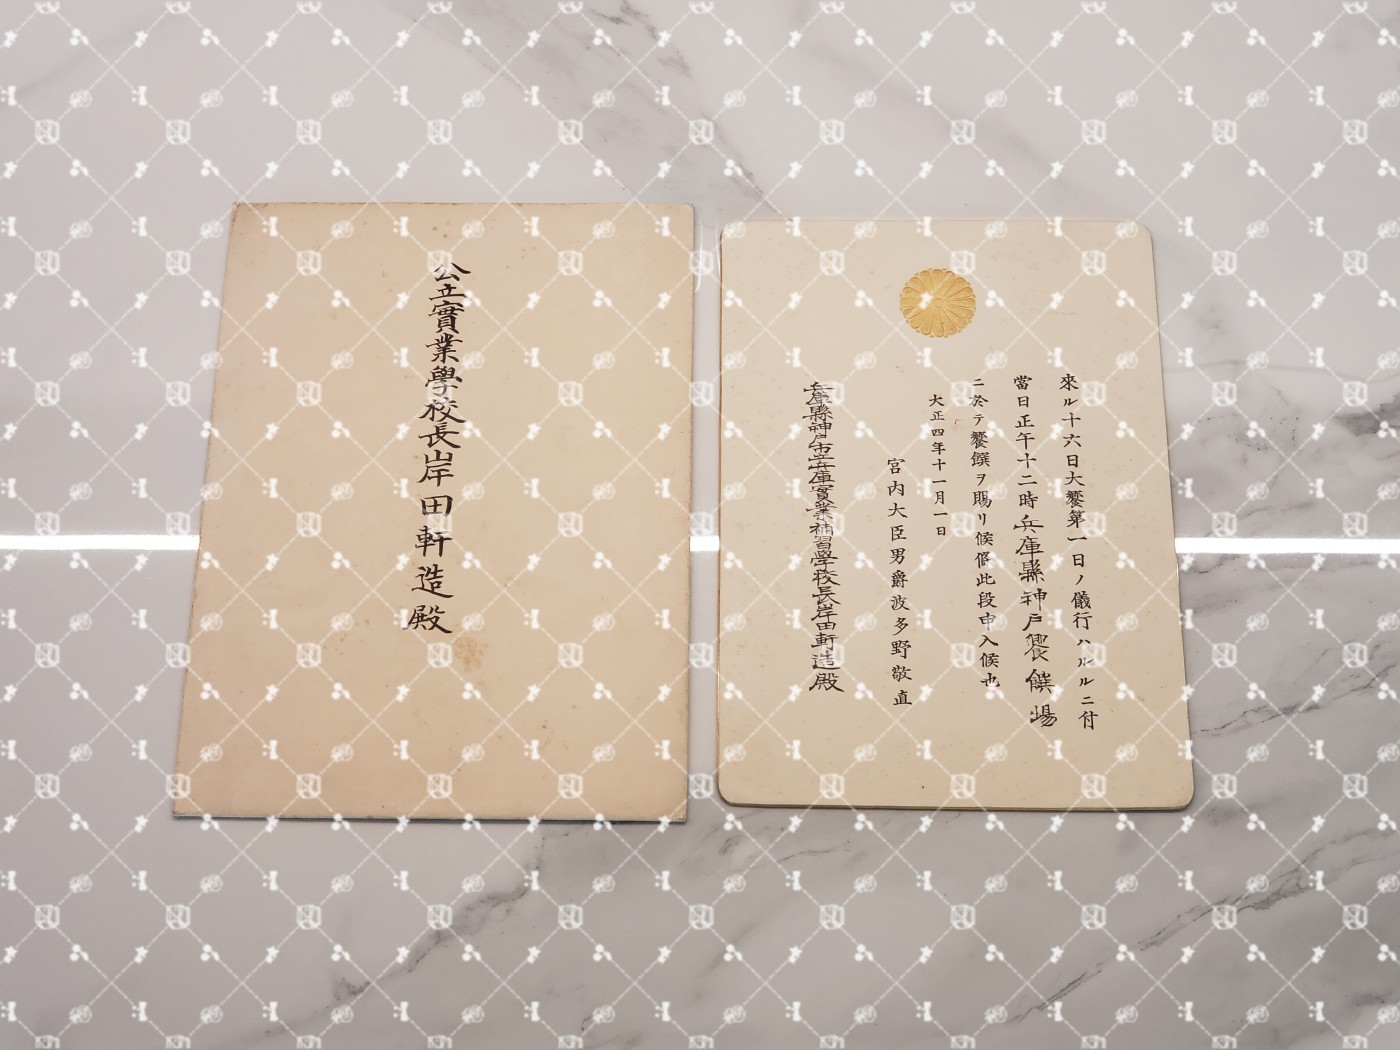 公立實業學校長岸田軒造殿
來ル十六日大饗第一日ノ儀行ハルルニ付
當日正午十二時兵庫縣神戸饗饌場
ニ於テ饗饌ヲ賜リ候條此段申入候也
大正四年十一月一日
宮内大臣男爵波多野敬直
兵庫縣神戸市立兵庫實業補習學校長岸田軒造殿